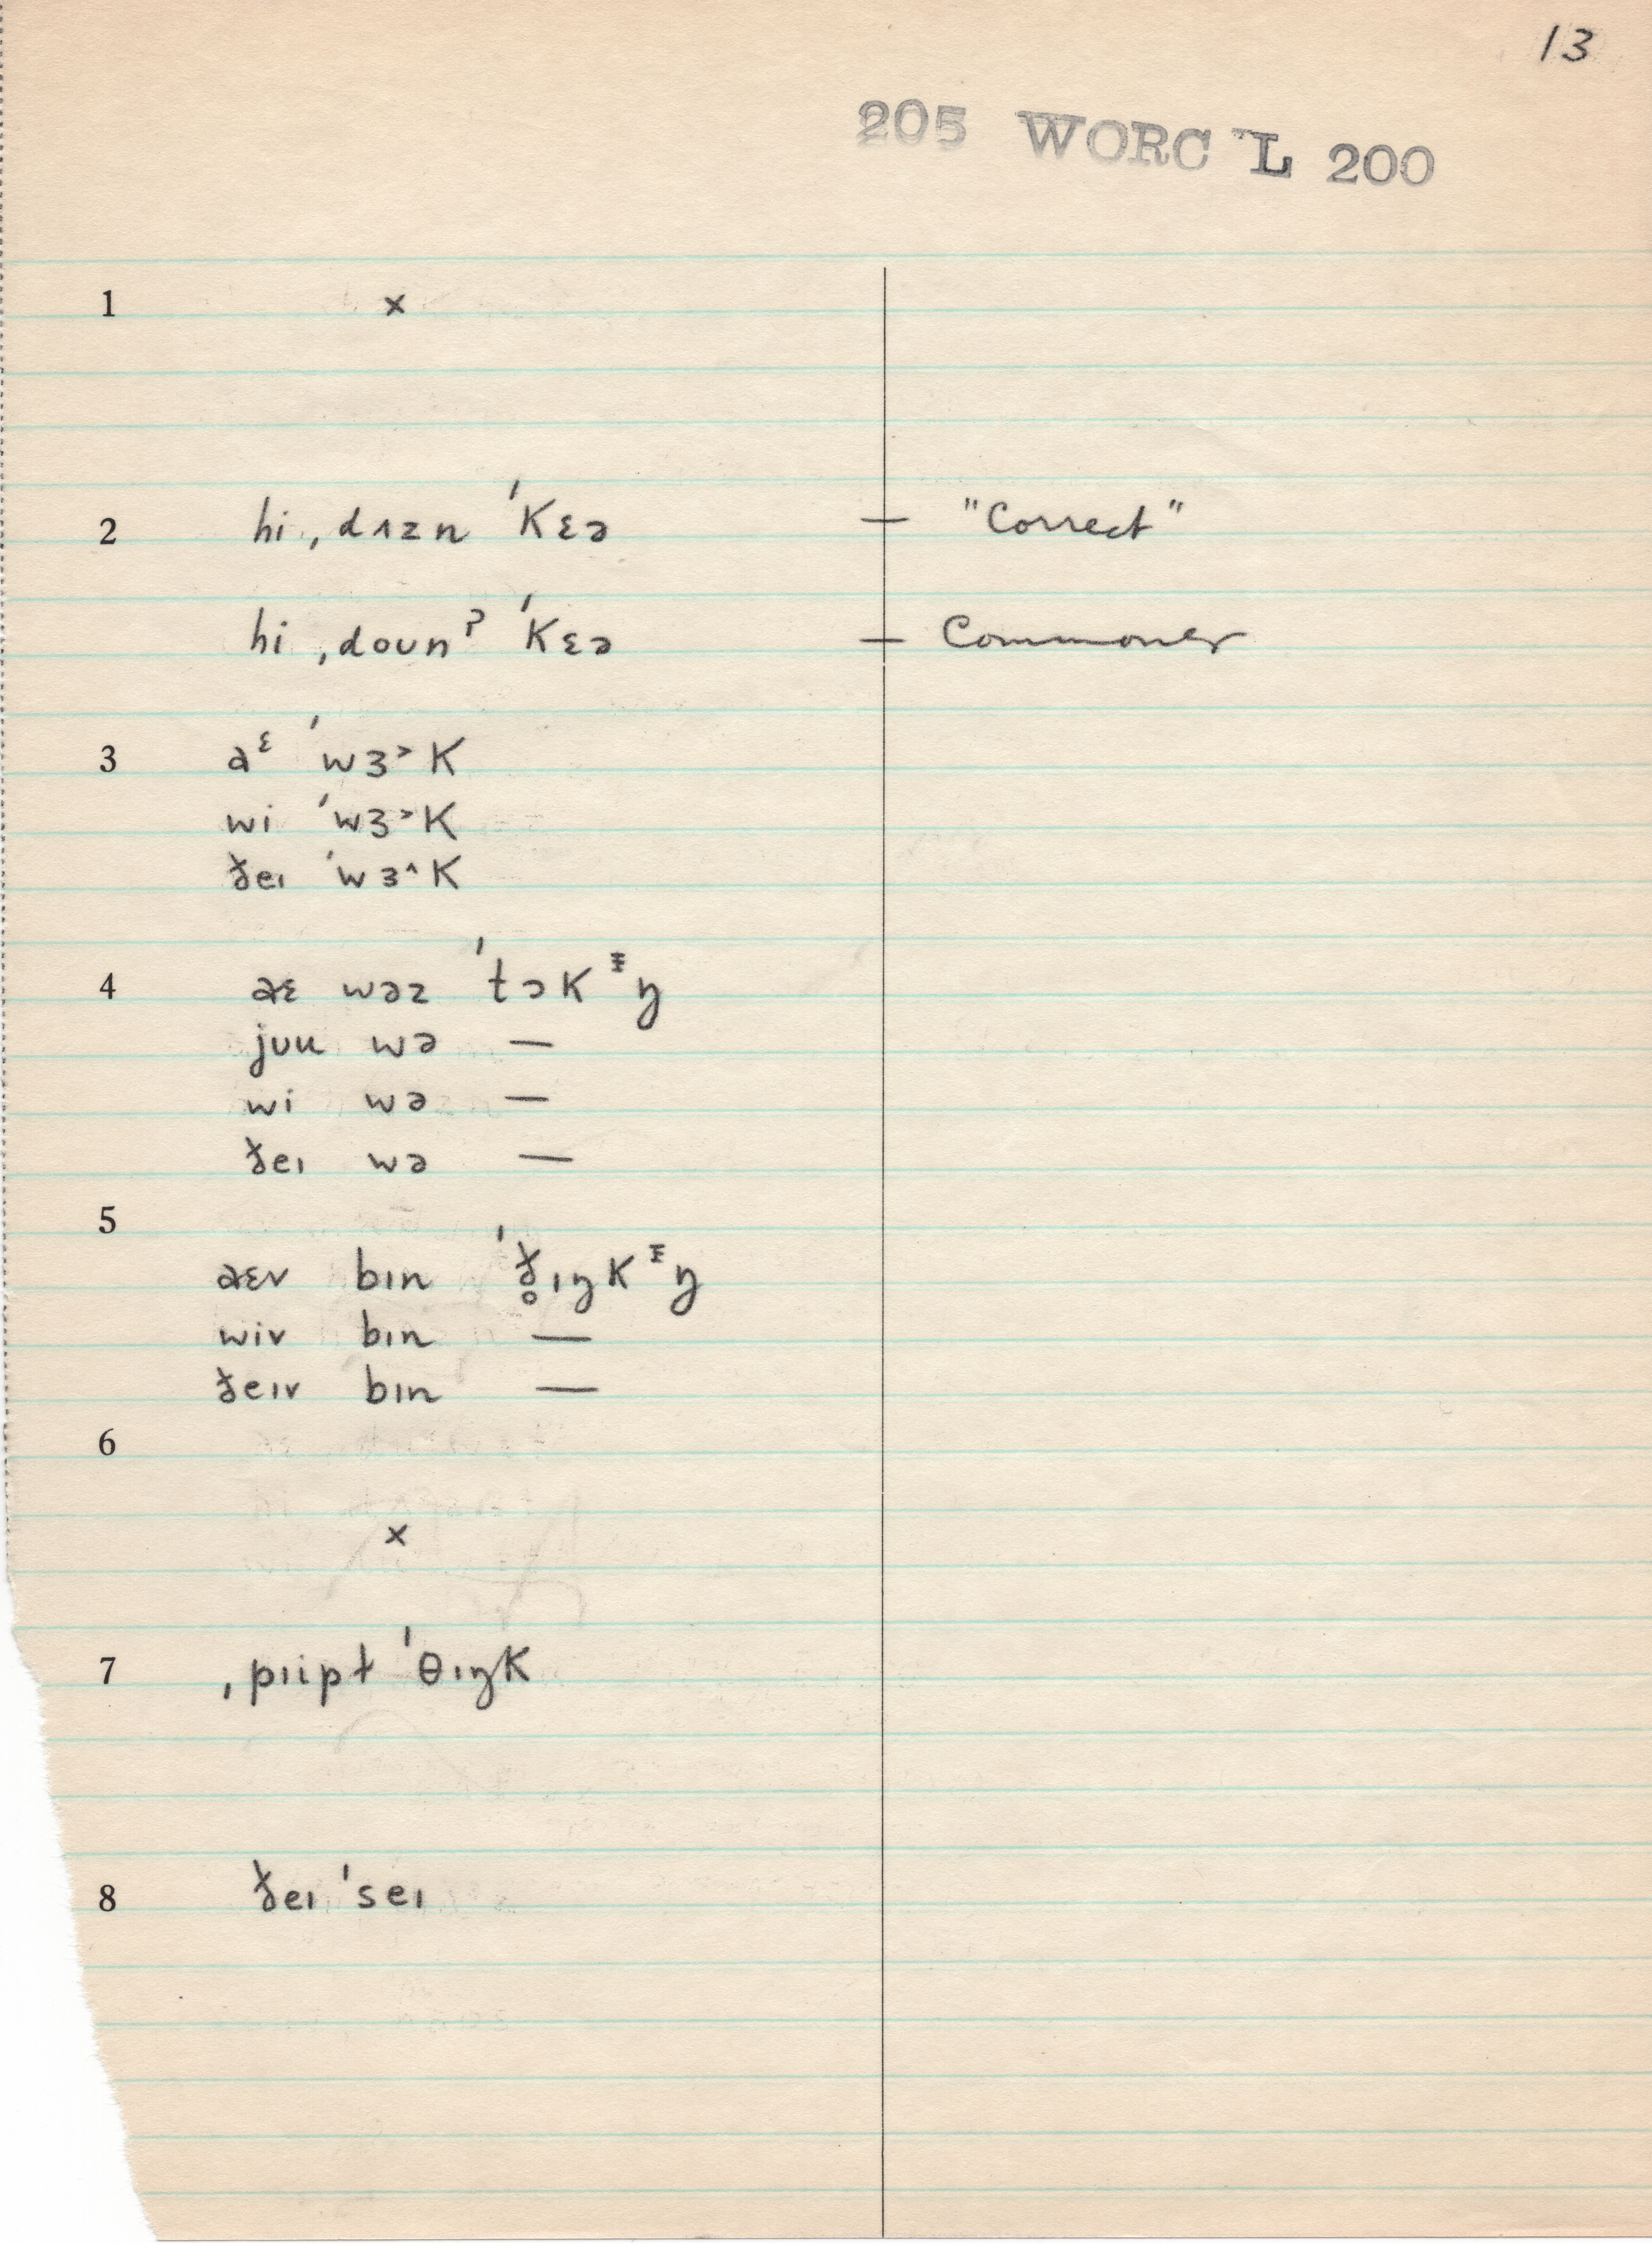 13
205 WORC L 200
1 ×
2 hi ˌdʌzn ˈkɛə — "Correct"
hi ˌdoʊnˀ ˈkɛə — Commoner
3 aᵋ ˈwɜ˃k
wi ˈwɜ˃k
ðeɪ ˈwɜ˄k
4 aɛ wəz ˈtɔkᶧŋ
jʊu wə —
wi wə —
ðeɪ wə —
5
aɛv bɪn ˈð̥ɪŋkᶧŋ
wiv bɪn —
ðeɪv bɪn —
6
×
7 ˌpɪipɫ ˈθɪŋk
8 ðeɪ ˈseɪ